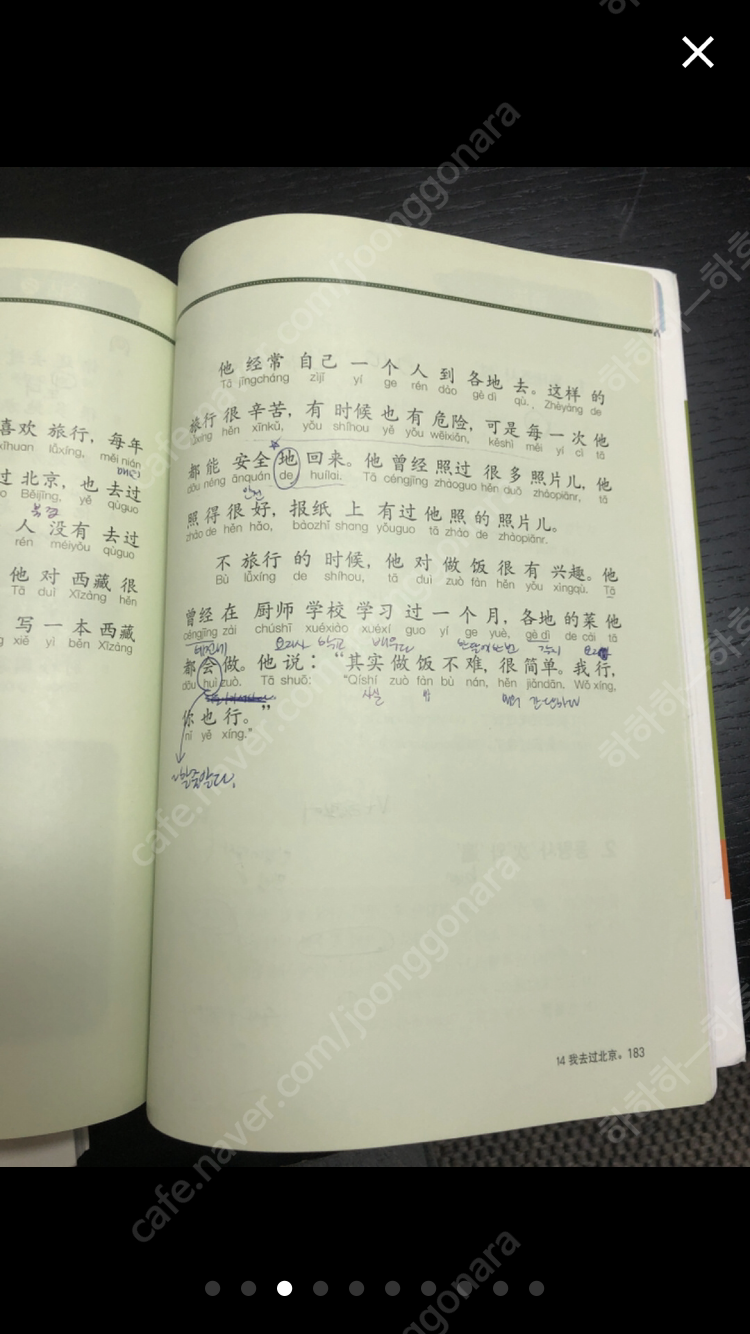 喜欢 旅行，每年
xǐhuan lǚxíng, měi nián
过 北京，也 去过
Běijīng, yě qùguo
人 没有 去过
rén méiyǒu qùguo
他 对 西藏 很
Tā duì Xīzàng hěn
写 一 本 西藏
xiě yì běn Xīzàng
他 经常 自己 一 个 人 到 各地 去。这样 的
Tā jīngcháng zìjǐ yí ge rén dào gè dì qù. Zhèyàng de
旅行 很 辛苦，有 时候 也 有 危险，可是 每 一 次 他
lǚxíng hěn xīnkǔ, yǒu shíhou yě yǒu wēixiǎn, kěshì měi yí cì tā
都 能 安全 地 回来。他 曾经 照过 很 多 照片儿，他
dōu néng ānquán de huílai. Tā céngjīng zhàoguo hěn duō zhàopiānr, tā
안전
照 得 很 好，报纸 上 有过 他 照 的 照片儿。
zhào de hěn hǎo, bàozhǐ shang yǒuguo tā zhào de zhàopiānr.
不 旅行 的 时候，他 对 做 饭 很 有 兴趣。他
Bù lǚxíng de shíhou, tā duì zuò fàn hěn yǒu xìngqù. Tā
曾经 在 厨师 学校 学习 过 一 个 月，各地 的 菜 他
céngjīng zài chúshī xuéxiào xuéxí guo yí ge yuè, gè dì de cài tā
요리사 학교 배우다
都 会 做。他 说：“其实 做 饭 不 难，很 简单。我 行，
dōu huì zuò. Tā shuō: “Qíshí zuò fàn bù nán, hěn jiǎndān. Wǒ xíng,
사실 밥 간단하다
你 也 行。”
nǐ yě xíng.”
~할줄알다.
14 我去过北京。183
cafe.naver.com/joonggonara
하하하—하하